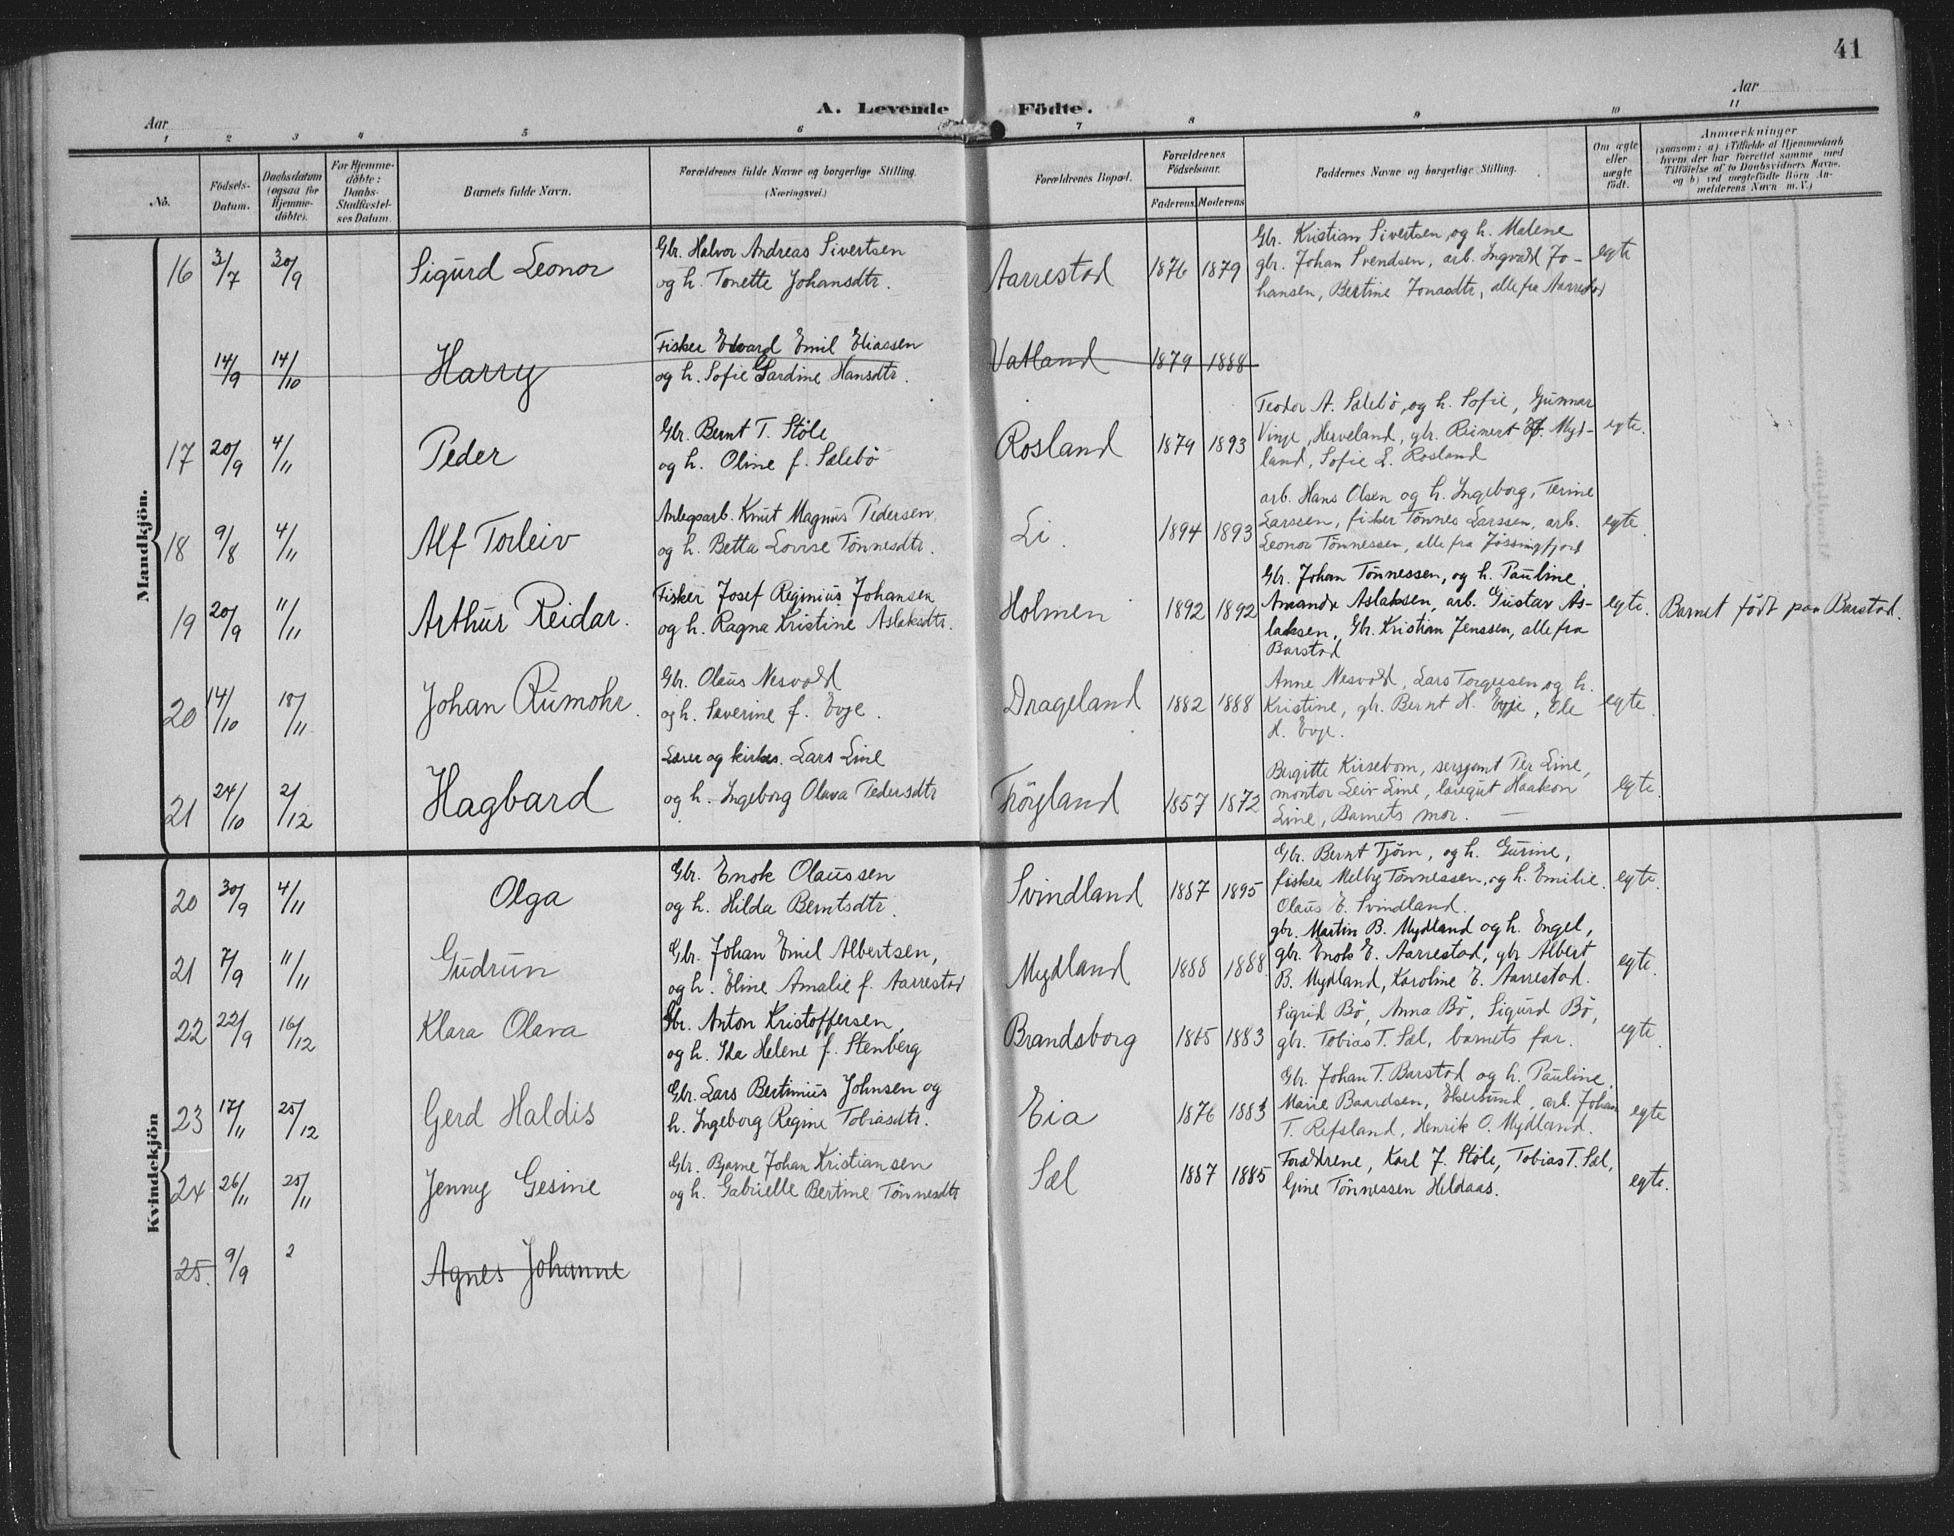 41
Aar
Aar
A. Levende Födte.
1 2 3 4 5 6 7 8 9 10 11
No.
Födsels-Datum.
Daabsdatum (ogsaa for Hjemmedöbte).
For Hjemmedöbte: Daabs-Stadfæstelses Datum.
Barnets fulde Navn.
Forældrenes fulde Navne og borgerlige Stilling. (Næringsvei.)
Forældrenes Bopæl.
Forældrenes Födselsaar.
Faderens. Moderens.
Faddernes Navne og borgerlige Stilling.
Om ægte eller uægte födt.
Anmærkninger
(saasom: a) i Tilfælde af Hjemmedaab
hvem der har forrettet samme med
Tilföielse af to Daabsvidners Navne,
og b) ved uægtefödte Börn An-
melderens Navn m. V.)
Mandkjön.
16 3/7 30/9 Sigurd Leonor
Gbr. Halvor Andreas Sivertsen
og h. Tonette Johansdtr.
Aarrestad 1876 1879
Gbr. Kristian Sivertsen, og h. Malene
gbr. Johan Svendsen, arb. Ingvald Jo-
hansen, Bertine Jonasdtr, alle fra Aarrestad
egte
14/9 14/10 Harry
Fisker Edvard Emil Eliassen
og h. Sofie Gardine Hansdtr.
Vatland 1879 1888
17 20/9 4/11 Peder
Gbr. Bernt T. Stöle
og h. Oline f. Salebö
Rosland 1879 1893
Teodor A. Salebö, og h. Sofie, Gunnar
Vinje, Herveland, gbr. Reinert Myd-
land, Sofie L. Rosland
egte.
18 9/8 4/11 Alf Torleiv
Anlegsarb. Knut Magnus Pedersen
og h. Betta Lovise Tönnesdtr.
Li. 1894 1893
arb. Hans Olsen og h. Ingeborg, Terine
Larssen, fisker Tönnes Larssen, arb.
Leonor Tönnessen, alle fra Jössingfjord
egte.
19 20/9 11/11 Arthur Reidar.
Fisker Josef Reginius Johansen
og h. Ragna Kristine Aslaksdtr.
Holmen 1892 1892
Gbr. Johan Tönnessen, og h. Pauline,
Amanda Aslaksen, arb. Gustav As-
laksen, Gbr. Kristian Jenssen, alle fra
Barstad
egte. Barnet födt paa Barstad.
20 14/10 18/11 Johan Rumohr.
Gbr. Olaus Nesvold
og h. Severine f. Evje.
Drageland 1882 1888
Anne Nesvold, Lars Torgersen og h.
Kristine, gbr. Bernt H. Evje, Ole
H. Evje.
egte.
21 24/10 2/12 Hagbard
Lærer og kirkes. Lars Line
og h. Ingeborg Olava Pedersdtr
Fröyland 1857 1872
Birgitte Kirsebom, sersjant Per Line,
montör Leiv Line, Haakon
Line, Barnets mor. —
egte.
Kvindekjön
20 30/9 4/11 Olga
Gbr. Enok Olaussen
og h. Hilda Berntsdtr.
Svindland 1887 1895
Gbr. Bernt Tjörn, og h. Gurine,
fisker Melby Tönnessen, og h. Emilie.
Olaus E. Svindland.
egte.
21 7/9 11/11 Gudrun
Gbr. Johan Emil Albertsen,
og h. Eline Amalie f. Aarrestad
Mydland 1888 1888
gbr. Martin B. Mydland og h. Engel,
gbr. Enok E. Aarrestad, gbr Albert
B. Mydland, Karoline E. Aarrestad.
egte.
22 22/9 16/12 Klara Olava
Gbr. Anton Kristoffersen,
og h. Ida Helene f. Stenberg
Brandsborg 1865 1883
Sigrid Bö, Anna Bö, Sigurd Bö,
gbr. Tobias T. Sæl, barnets far.
egte.
23 17/11 25/12 Gerd Haldis
Gbr. Lars Bertinius Johnsen og
h. Ingeborg Regine Tobiasdtr.
Eia 1876 1883
Gbr. Johan T. Barstad og h. Pauline,
Marie Baardsen, Ekersund, arb. Johan
T. Refsland, Henrik O. Mydland.
egte
24 26/11 25/11 Jenny Gesine
Gbr. Bjarne Johan Kristiansen
og h. Gabrielle Bertine Tönnesdtr
Sæl 1887 1885
Forældrene, Karl J. Stöle, Tobias T. Sæl,
Gine Tönnessen Heldaas.
egte.
25. 9/9 2 Agnes Johanne